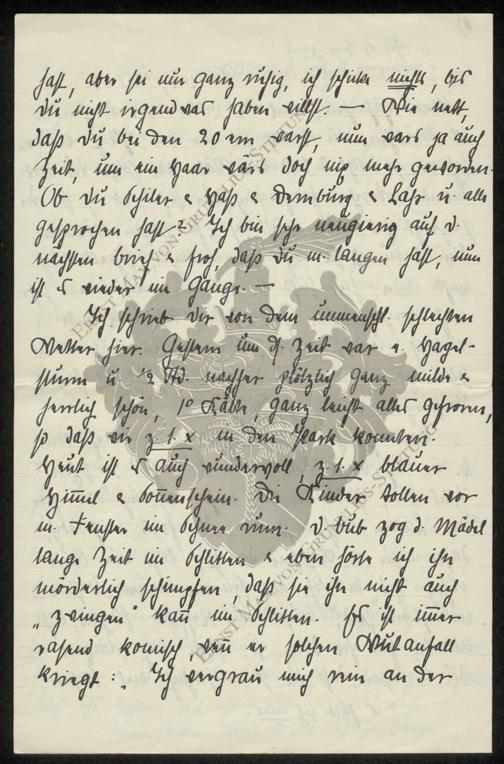 hast, aber sei nur ganz ruhig, ich schicke nichts, bis
Du nicht irgendwas haben willst. — Wie nett,
daß Du bei den 20ern warst, nun wars ja auch
Zeit, um ein Haar wärs doch nix mehr geworden.
Ob Du Schiler & Haß & Dernburg & Lahr u. alle
gesprochen hast? Ich bin sehr neugierig auf d.
nächsten brief & froh, daß Du m. langen hast, nun
ist es wieder im Gange. —
Ich schrieb Dir von dem unmenschl. schlechten
Wetter hier. Gestern um d. Zeit war e. Hagel-
sturm u. ½ Std. nachher plötzlich ganz milde &
herrlich schön, 1° Kälte, ganz leicht alles gefroren,
so daß wir z. 1. x in den Park konnten.
Heut ist es auch wundervoll, z. 1. x blauer
Himmel & Sonnenschein. Die Kinder tollen vor
m. Fenster im Schnee rum. D. bub zog d. Mädel
lange Zeit im Schlitten & eben hörte ich ihn
mörderlich schimpfen, daß sie ihn nicht auch
„zwingen" kann im Schlitten. Es ist immer
rasend komisch, wenn er solchen Wutanfall
kriegt: Ich vergrau mich rein an der
ERNST MAX VON GRUNELIUS-STIFTUNG
ERNST MAX VON GRUNELIUS-STIFTUNG